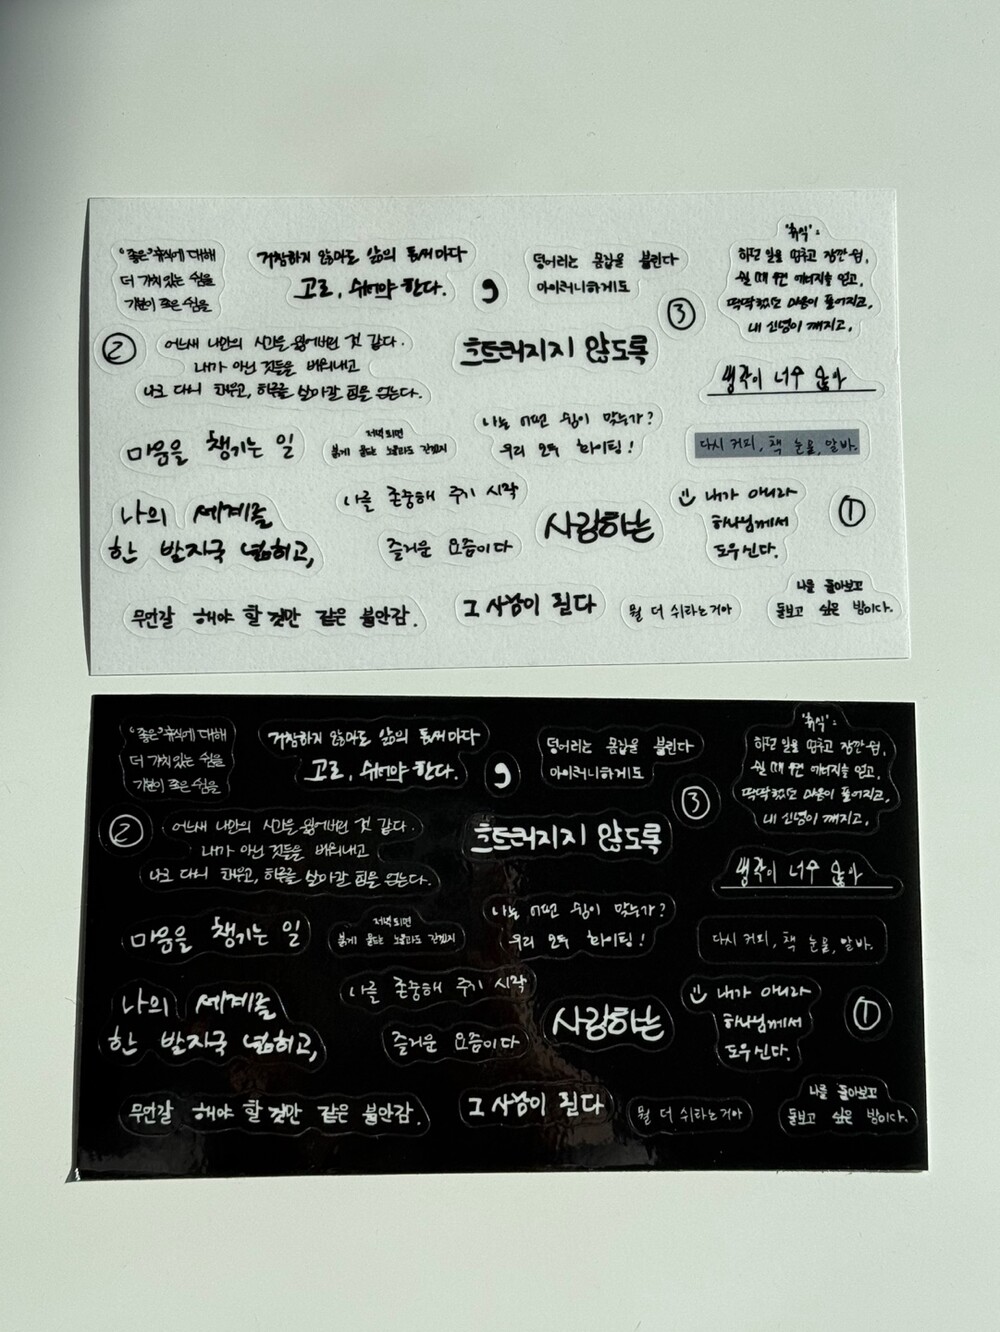 "좋은" 휴식에 대해
더 가치있는 쉼을
기분이 좋은 쉼을
거창하지 않아도 삶의 틈새마다
고로, 쉬어야 한다.
,
덩어리는 몸값을 불린다
아이러니하게도
③
'휴식' :
하던 일을 멈추고 잠깐 쉼,
쉴 때 에너지를 얻고,
딱딱했던 마음이 풀어지고,
내 신념이 깨지고,
②
어느새 나만의 시간을 잃어버린 것 같다.
내가 아닌 것들을 비워내고
나로 다시 채우고, 하루를 살아갈 힘을 얻는다.
흐트러지지 않도록
생각이 너무 많아
마음을 챙기는 일
저녁되면
붉게 물드는 노을라도 간직지
나는 어떤 쉼이 맞는가?
우리 모두 화이팅!
다시 커피, 책 눈물, 알바.
나의 세계를
한 발자국 넓히고,
나를 존중해 주기 시작
즐거운 요즘이다
사랑하는
내가 아니라
하나님께서
도우신다.
①
무언갈 해야 할 것만 같은 불안감.
그 사람이 된다
뭘 더 쉬라는거야
나를 돌아보고
돌보고 싶은 밤이다.
"좋은" 휴식에 대해
더 가치있는 쉼을
기분이 좋은 쉼을
거창하지 않아도 삶의 틈새마다
고로, 쉬어야 한다.
,
덩어리는 몸값을 불린다
아이러니하게도
③
'휴식' :
하던 일을 멈추고 잠깐 쉼,
쉴 때 에너지를 얻고,
딱딱했던 마음이 풀어지고,
내 신념이 깨지고,
②
어느새 나만의 시간을 잃어버린 것 같다.
내가 아닌 것들을 비워내고
나로 다시 채우고, 하루를 살아갈 힘을 얻는다.
흐트러지지 않도록
생각이 너무 많아
마음을 챙기는 일
저녁되면
붉게 물드는
나는 어떤 쉼이 맞는가?
우리 모두 화이팅!
다시 커피, 책 눈물, 알바.
나의 세계를
한 발자국 넓히고,
나를 존중해 주기 시작
즐거운 요즘이다
사랑하는
내가 아니라
하나님께서
도우신다.
①
무언갈 해야 할 것만 같은 불안감.
그 사람이 된다
뭘 더 쉬라는거야
나를 돌아보고
돌보고 싶은 밤이다.